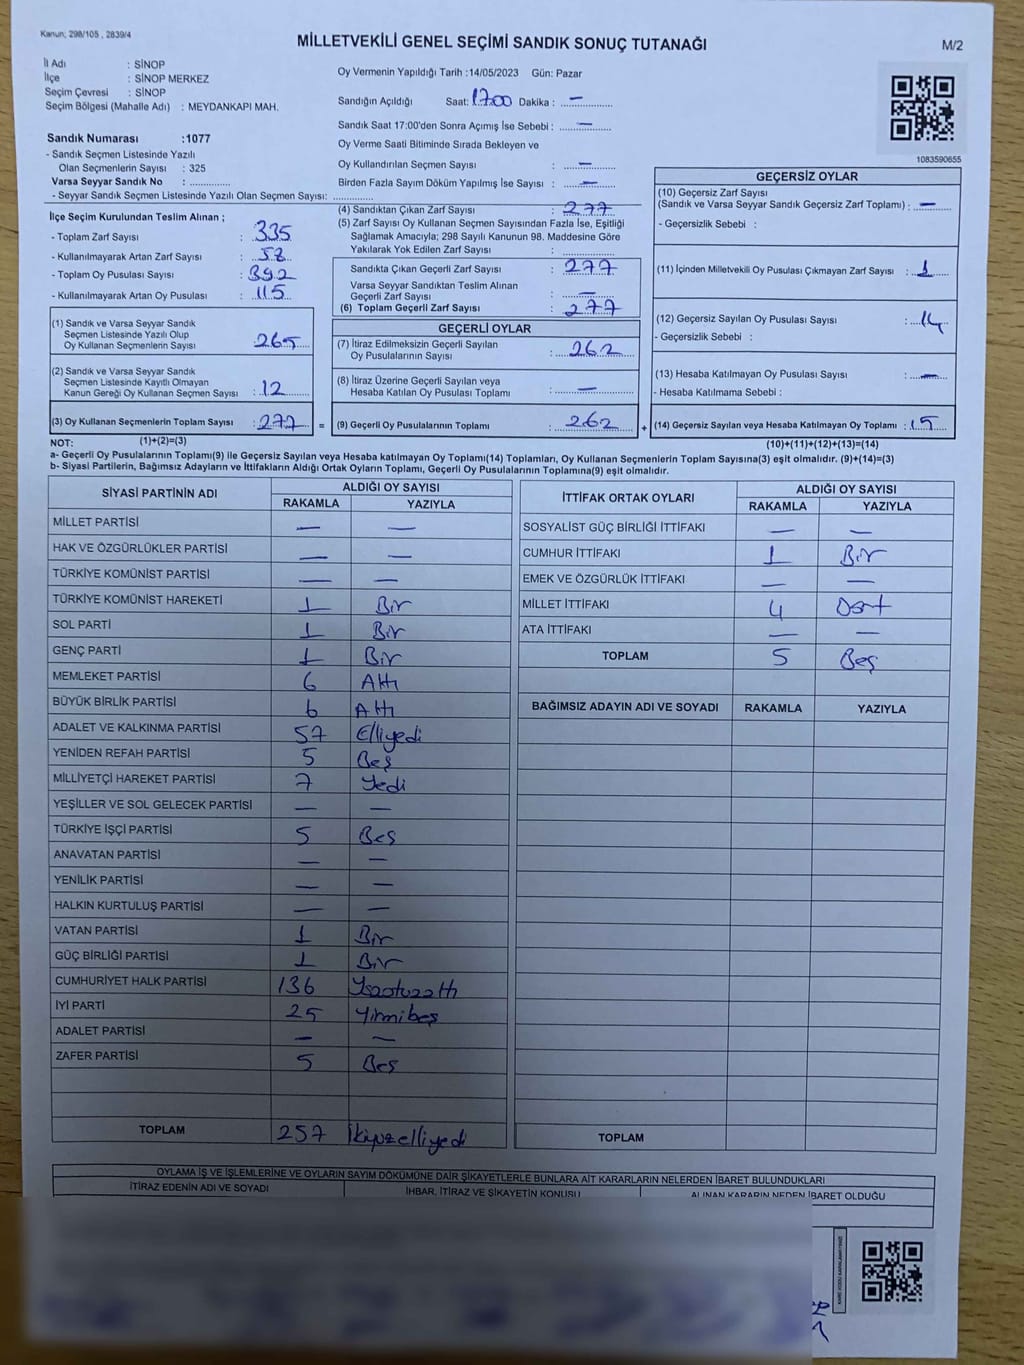 Kanun; 298/105 , 2839/4
MİLLETVEKİLİ GENEL SEÇİMİ SANDIK SONUÇ TUTANAĞI
M/2
İl Adı : SİNOP
İlçe : SİNOP MERKEZ
Seçim Çevresi : SİNOP
Seçim Bölgesi (Mahalle Adı) : MEYDANKAPI MAH.
Oy Vermenin Yapıldığı Tarih :14/05/2023 Gün: Pazar
Sandığın Açıldığı Saat: 17.00 Dakika : —
Sandık Saat 17:00'den Sonra Açımış İse Sebebi : —
Oy Verme Saati Bitiminde Sırada Bekleyen ve
Oy Kullandırılan Seçmen Sayısı : —
Birden Fazla Sayım Döküm Yapılmış İse Sayısı : —
1083590655
Sandık Numarası :1077
- Sandık Seçmen Listesinde Yazılı
Olan Seçmenlerin Sayısı : 325
Varsa Seyyar Sandık No : ..............
- Seyyar Sandık Seçmen Listesinde Yazılı Olan Seçmen Sayısı: ..............
İlçe Seçim Kurulundan Teslim Alınan ;
- Toplam Zarf Sayısı : 335
- Kullanılmayarak Artan Zarf Sayısı : 58
- Toplam Oy Pusulası Sayısı : 392
- Kullanılmayarak Artan Oy Pusulası : 115
(1) Sandık ve Varsa Seyyar Sandık
Seçmen Listesinde Yazılı Olup
Oy Kullanan Seçmenlerin Sayısı : 265
(2) Sandık ve Varsa Seyyar Sandık
Seçmen Listesinde Kayıtlı Olmayan
Kanun Gereği Oy Kullanan Seçmen Sayısı : 12
(3) Oy Kullanan Seçmenlerin Toplam Sayısı : 277 =
(4) Sandıktan Çıkan Zarf Sayısı : 277
(5) Zarf Sayısı Oy Kullanan Seçmen Sayısından Fazla İse, Eşitliği
Sağlamak Amacıyla; 298 Sayılı Kanunun 98. Maddesine Göre
Yakılarak Yok Edilen Zarf Sayısı : ..............
Sandıkta Çıkan Geçerli Zarf Sayısı : 277
Varsa Seyyar Sandıktan Teslim Alınan
Geçerli Zarf Sayısı : —
(6) Toplam Geçerli Zarf Sayısı : 277
GEÇERLİ OYLAR
(7) İtiraz Edilmeksizin Geçerli Sayılan
Oy Pusulalarının Sayısı : 262
(8) İtiraz Üzerine Geçerli Sayılan veya
Hesaba Katılan Oy Pusulası Toplamı : —
(9) Geçerli Oy Pusulalarının Toplamı : 262 +
GEÇERSİZ OYLAR
(10) Geçersiz Zarf Sayısı
(Sandık ve Varsa Seyyar Sandık Geçersiz Zarf Toplamı) : —
- Geçersizlik Sebebi :
(11) İçinden Milletvekili Oy Pusulası Çıkmayan Zarf Sayısı : 1
(12) Geçersiz Sayılan Oy Pusulası Sayısı : 14
- Geçersizlik Sebebi :
(13) Hesaba Katılmayan Oy Pusulası Sayısı : —
- Hesaba Katılmama Sebebi :
(14) Geçersiz Sayılan veya Hesaba Katılmayan Oy Toplamı : 15
NOT: (1)+(2)=(3)
(10)+(11)+(12)+(13)=(14)
a- Geçerli Oy Pusulalarının Toplamı(9) ile Geçersiz Sayılan veya Hesaba katılmayan Oy Toplamı(14) Toplamları, Oy Kullanan Seçmenlerin Toplam Sayısına(3) eşit olmalıdır. (9)+(14)=(3)
b- Siyasi Partilerin, Bağımsız Adayların ve İttifakların Aldığı Ortak Oyların Toplamı, Geçerli Oy Pusulalarının Toplamına(9) eşit olmalıdır.
SİYASİ PARTİNİN ADI ALDIĞI OY SAYISI
RAKAMLA YAZIYLA
MİLLET PARTİSİ — —
HAK VE ÖZGÜRLÜKLER PARTİSİ — —
TÜRKİYE KOMÜNİST PARTİSİ — —
TÜRKİYE KOMÜNİST HAREKETİ 1 Bir
SOL PARTİ 1 Bir
GENÇ PARTİ 1 Bir
MEMLEKET PARTİSİ 6 Altı
BÜYÜK BİRLİK PARTİSİ 6 Altı
ADALET VE KALKINMA PARTİSİ 57 Elliyedi
YENİDEN REFAH PARTİSİ 5 Beş
MİLLİYETÇİ HAREKET PARTİSİ 7 Yedi
YEŞİLLER VE SOL GELECEK PARTİSİ — —
TÜRKİYE İŞÇİ PARTİSİ 5 Beş
ANAVATAN PARTİSİ — —
YENİLİK PARTİSİ — —
HALKIN KURTULUŞ PARTİSİ — —
VATAN PARTİSİ 1 Bir
GÜÇ BİRLİĞİ PARTİSİ 1 Bir
CUMHURİYET HALK PARTİSİ 136 Yüzotuzaltı
İYİ PARTİ 25 Yirmibeş
ADALET PARTİSİ — —
ZAFER PARTİSİ 5 Beş
TOPLAM 257 İkiyüzelliyedi
İTTİFAK ORTAK OYLARI ALDIĞI OY SAYISI
RAKAMLA YAZIYLA
SOSYALİST GÜÇ BİRLİĞİ İTTİFAKI — —
CUMHUR İTTİFAKI 1 Bir
EMEK VE ÖZGÜRLÜK İTTİFAKI — —
MİLLET İTTİFAKI 4 Dört
ATA İTTİFAKI — —
TOPLAM 5 Beş
BAĞIMSIZ ADAYIN ADI VE SOYADI RAKAMLA YAZIYLA
TOPLAM
OYLAMA İŞ VE İŞLEMLERİNE VE OYLARIN SAYIM DÖKÜMÜNE DAİR ŞİKAYETLERLE BUNLARA AİT KARARLARIN NELERDEN İBARET BULUNDUKLARI
İTİRAZ EDENİN ADI VE SOYADI İHBAR, İTİRAZ VE ŞİKAYETİN KONUSU ALINAN KARARIN NEDEN İBARET OLDUĞU